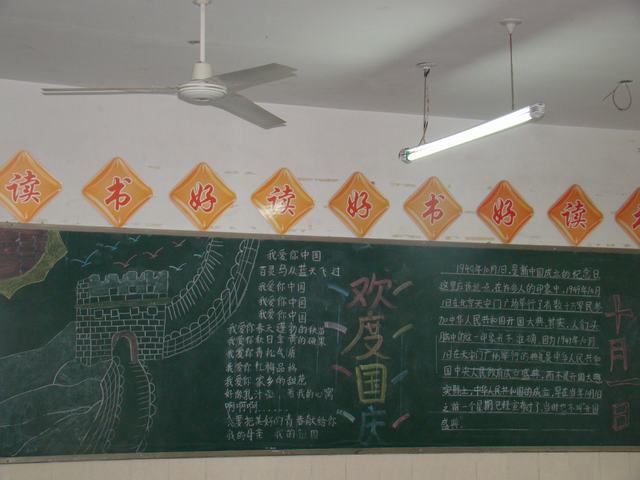 读书好读好书好读
我爱你中国
百灵鸟从蓝天飞过
我爱你中国
我爱你中国
我爱你中国
我爱你春天蓬勃的秧苗
我爱你秋日金黄的硕果
我爱你青松气质
我爱你红梅品格
我爱你家乡的甜蔗
好像乳汁 着我的心窝
啊啊啊……
要把美好的青春献给你
我的母亲 我的祖国
欢度国庆
1949年10月1日,是新中国成立的纪念日
在许多人的印象中,1949年10月
1日在北京天安门广场举行了有数十万军民参
加中华人民共和国开国大典,其实,人们头
脑中的这一印象并不准确,因为1949年10月
1日在天安门广场举行的
国中央人民政府成立盛典,而不是开国大典
中华人民共和国的成立,早在当年10月1日
之前一个星期已经宣布过了,
盛典.
十月一日